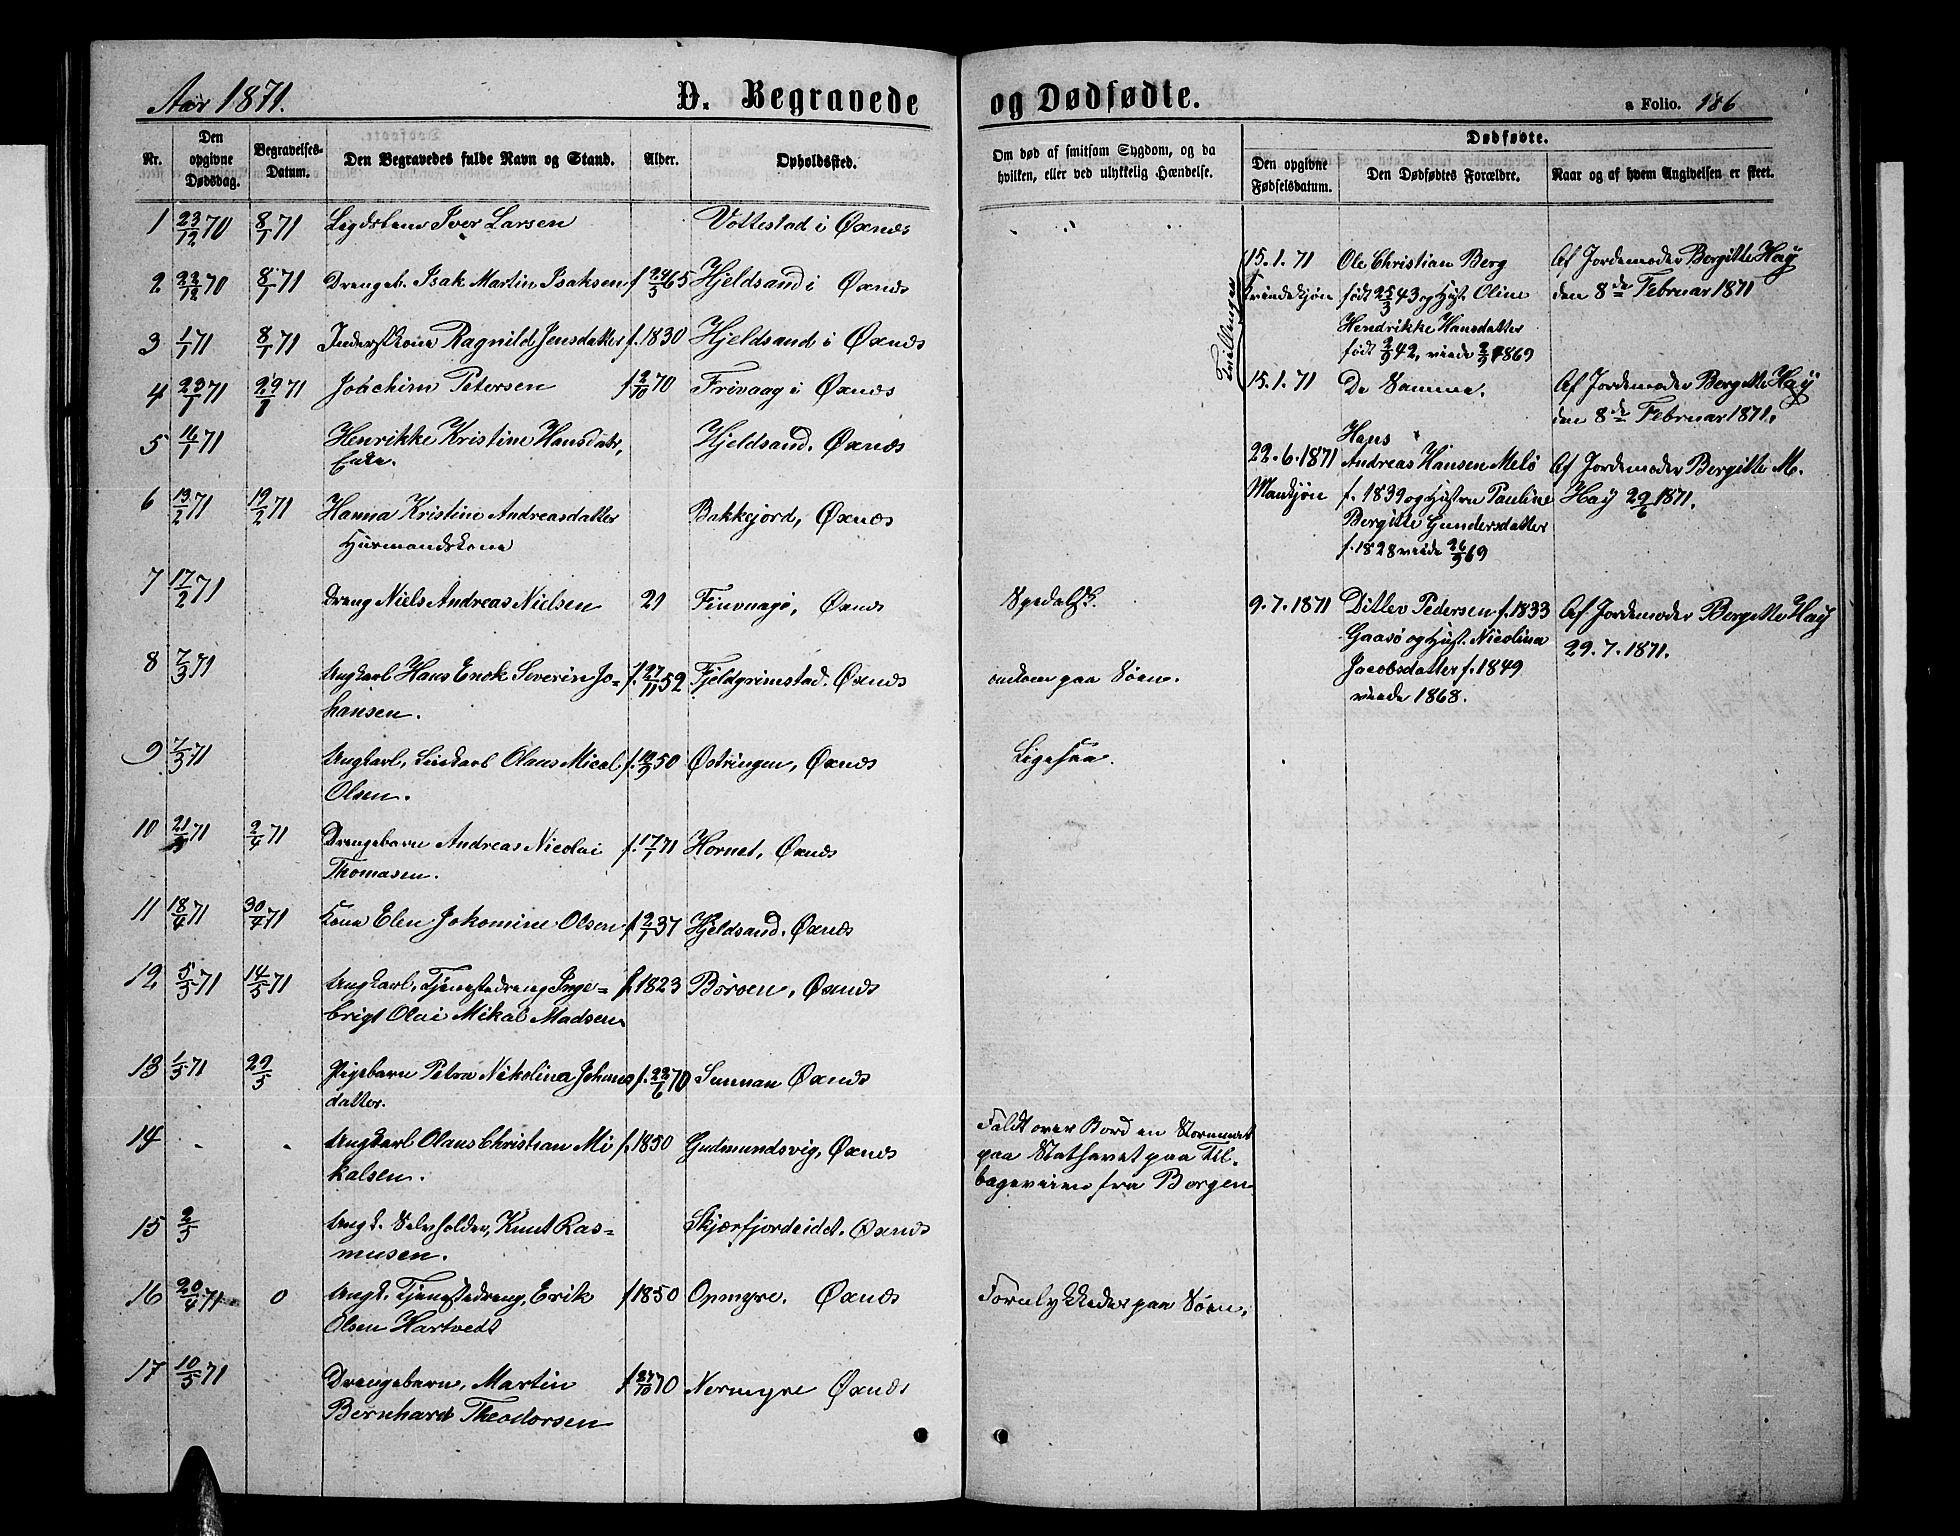 Aar 1871.
D. Begravede
og Dødfødte.
a Folio. 186
Nr.
Den opgivne Dødsdag.
Begravelses-Datum.
Den Begravedes fulde Navn og Stand.
Alder.
Opholdssted.
Om død af smitsom Sygdom, og da hvilken, eller ved ulykkelig Hændelse.
Dødfødte.
Den opgivne Fødselsdatum.
Den Dødfødtes Forældre.
Naar og af hvem Angivelsen er skeet.
1 23/12 70 8/1 71 Iver Larsen Vottestad i Øxnæs
2 22/12 70 8/1 71 Drengeb. Isak Martin Isaksen f 24/5 65 Hjeldsand i Øxnæs
3 1/1 71 8/1 71 Inderstkone Ragnild Jensdatter f. 1830 Hjeldsand i Øxnæs
4 23/1 71 29/1 71 Joachim Petersen f 2/10 70 Frivaag i Øxnæs
5 16/1 71 Henrikke Kristine Hansdatr, Hjeldsand. Øxnæs
Enke.
6 13/2 71 19/2 71 Hanna Kristine Andreasdatter Bakkejord, Øxnæs
Huusmandskone
7 17/2 71 Dreng Niels Andreas Nielsen 21 Finvaagø, Øxnæs Spedalsk.
8 7/3 71 Ungkarl Hans Enok Severin Jo- f. 27/11 52 Fjeldgrimstad. Øxnæs omkom paa Søen.
hansen.
9 7/3 71 Ungkarl, Olaus Micael f. 12/9 50 Østringen, Øxnæs Ligesaa.
Olsen.
10 21/3 71 2/4 71 Drengebarn Andreas Nicolai f. 17/1 71 Hornet, Øxnæs
Thomasen.
11 18/4 71 30/4 71 Kone Elen Jokomine Olsen f 2/1 37 Hjeldsand. Øxnæs
12 5/5 71 14/5 71 Ungkarl, Tjenestedreng Inge- f. 1823 Børøen, Øxnæs
brigt Olai Mikal Madsen
13 1/5 71 29/5 Pigebarn Petra Nikolina Johans f. 22/6 70 Sunnan Øxnæs
datter.
14 Ungkarl Olaus Christian Mi f. 1850 Gudmundsvig, Øxnæs
kalsen.
Faldt over Bord en Stormnat
paa Stathavet paa Til-
bageveien fra Bergen
15 2/5 Ungk. Selvholder, Knut Ras- Skjærfjordeidet. Øxnæs
musen.
16 20/4 71 0 Ungk. Tjenestedreng, Erik f 1850 Opmyre. Øxnæs Forulykkedes paa Søen.
Olsen Hartvedt
17 10/5 71 Drengebarn, Martin f 27/10 70 Nermyre Øxnæs
Bernhard Theodorsen
Tvillinger
15. 1. 71 Ole Christian Berg Af Jordemoder Bergitte Hay
Kvindekjøn født 25/3 43 og Hust. Oline den 8de Februar 1871
Hendrikke Hansdatter
født 2/9 42, viede 1869
15. 1. 71 De Samme. Af Jordemoder Bergitte Hay
den 8de Februar 1871.
Hans
22. 6. 1871 Andreas Hansen Melø Af Jordemoder Bergitte M.
Mandkjøn f. 1839 og Hustru Pauline Hay 29/6 1871.
Bergitte Gundersdatter
f. 1828 viede 26/9 69
9. 7. 1871 Ditlev Pedersen f. 1833 Af Jordemoder Bergitte Hay
Gaasø og Hust. Nicolina 29. 7. 1871.
Jacobsdatter f. 1849
viede 1868.